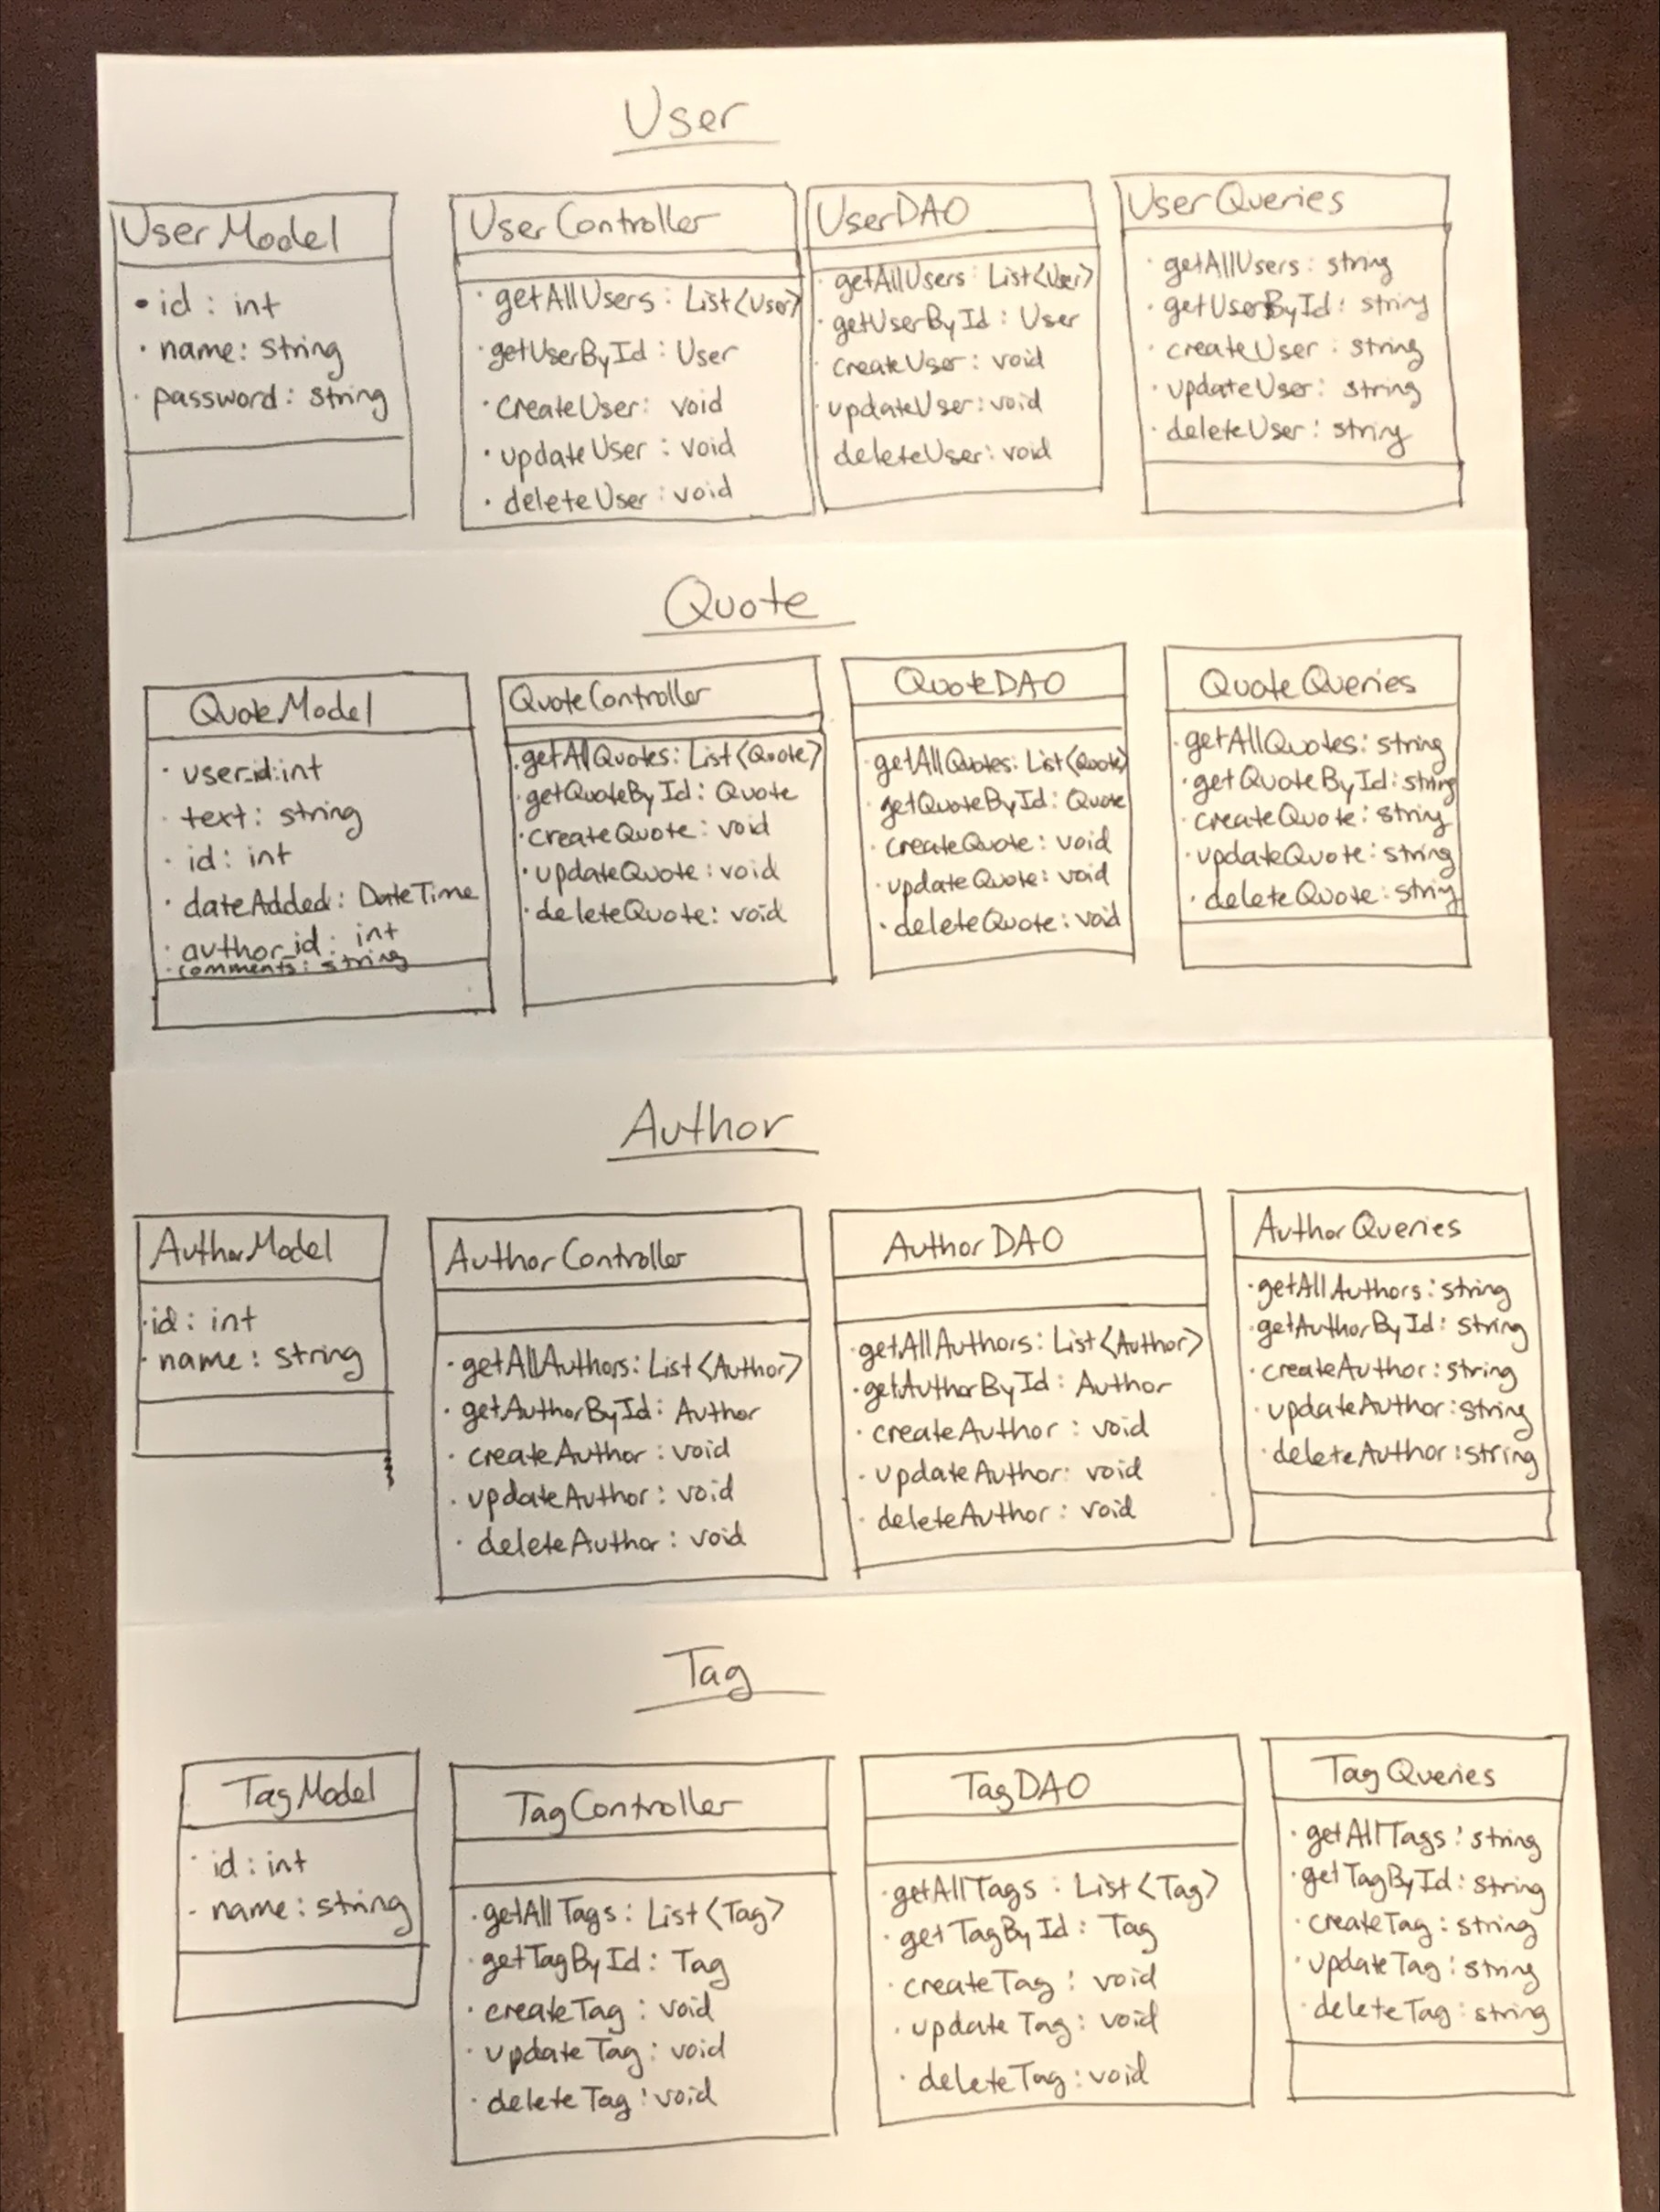 User
UserModel
• id : int
· name: string
· password: string
UserController
· getAllUsers : List<User>
· getUserById : User
· createUser: void
· updateUser : void
· deleteUser : void
UserDAO
· getAllUsers : List<User>
· getUserById : User
· createUser : void
· updateUser : void
deleteUser : void
UserQueries
· getAllUsers : string
· getUserById : string
· createUser : string
· updateUser : string
· deleteUser : string
Quote
QuoteModel
· user_id: int
· text: string
· id: int
· dateAdded: DateTime
· author_id: int
· comments: string
QuoteController
· getAllQuotes: List<Quote>
· getQuoteById: Quote
· createQuote: void
· updateQuote: void
· deleteQuote: void
QuoteDAO
· getAllQuotes: List<Quote>
· getQuoteById: Quote
· createQuote: void
· updateQuote: void
· deleteQuote: void
QuoteQueries
· getAllQuotes: string
· getQuoteById: string
· createQuote: string
· updateQuote: string
· deleteQuote: string
Author
AuthorModel
· id: int
· name: string
AuthorController
· getAllAuthors: List<Author>
· getAuthorById: Author
· createAuthor : void
· updateAuthor : void
· deleteAuthor : void
AuthorDAO
· getAllAuthors: List<Author>
· getAuthorById: Author
· createAuthor : void
· updateAuthor: void
· deleteAuthor : void
AuthorQueries
· getAllAuthors: string
· getAuthorById: string
· createAuthor: string
· updateAuthor: string
· deleteAuthor: string
Tag
TagModel
· id: int
- name: string
TagController
· getAllTags: List<Tag>
· getTagById: Tag
· createTag: void
· updateTag: void
· deleteTag: void
TagDAO
· getAllTags : List<Tag>
· getTagById: Tag
· createTag: void
· updateTag: void
· deleteTag: void
TagQueries
· getAllTags: string
· getTagById: string
· createTag: string
· updateTag: string
· deleteTag: string